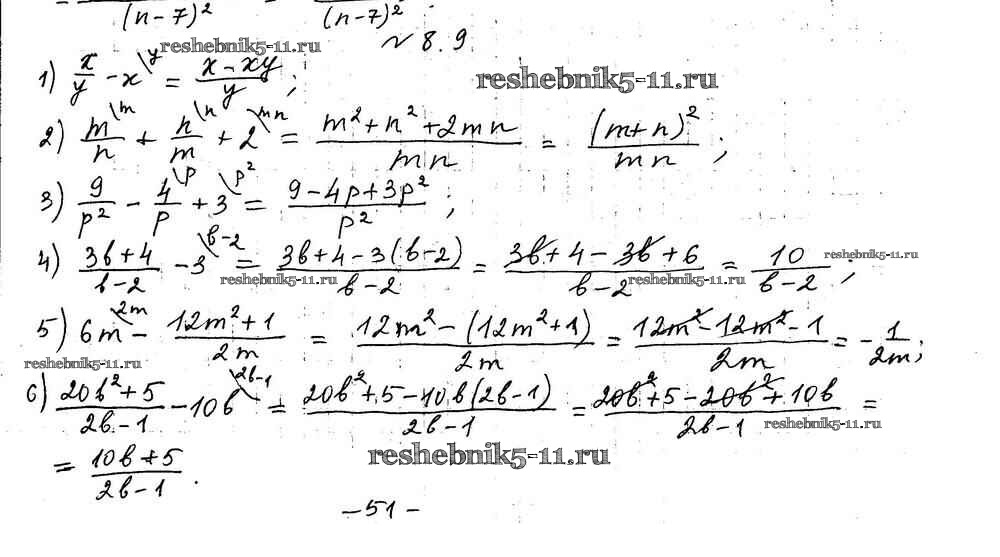 (n-7)² (n-7)²
№ 8.9
reshebnik5-11.ru
1) x/y - x\y = (x - xy)/y;
reshebnik5-11.ru
2) m/n\m + n/m\n + 2\mn = (m² + n² + 2mn)/(mn) = (m+n)²/(mn);
3) 9/p² - 4/p\p + 3\p² = (9 - 4p + 3p²)/p²;
4) (3b+4)/(b-2) - 3\b-2 = (3b+4-3(b-2))/(b-2) = (3b+4-3b+6)/(b-2) = 10/(b-2);
reshebnik5-11.ru reshebnik5-11.ru reshebnik5-11.ru
5) 6m\2m - (12m²+1)/(2m) = (12m² - (12m²+1))/(2m) = (12m² - 12m² - 1)/(2m) = - 1/(2m);
reshebnik5-11.ru
6) (20b²+5)/(2b-1) - 10b\2b-1 = (20b²+5-10b(2b-1))/(2b-1) = (20b²+5-20b²+10b)/(2b-1) =
reshebnik5-11.ru
= (10b+5)/(2b-1).
reshebnik5-11.ru
-51-